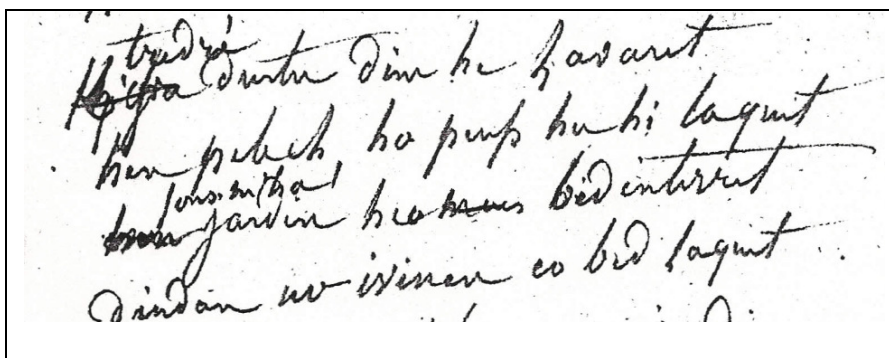 dustu dim he lavaret
hen pelech ho peus hu hi laquet
jardin heo bed interret
dindan ur ivinen eo bed laquet